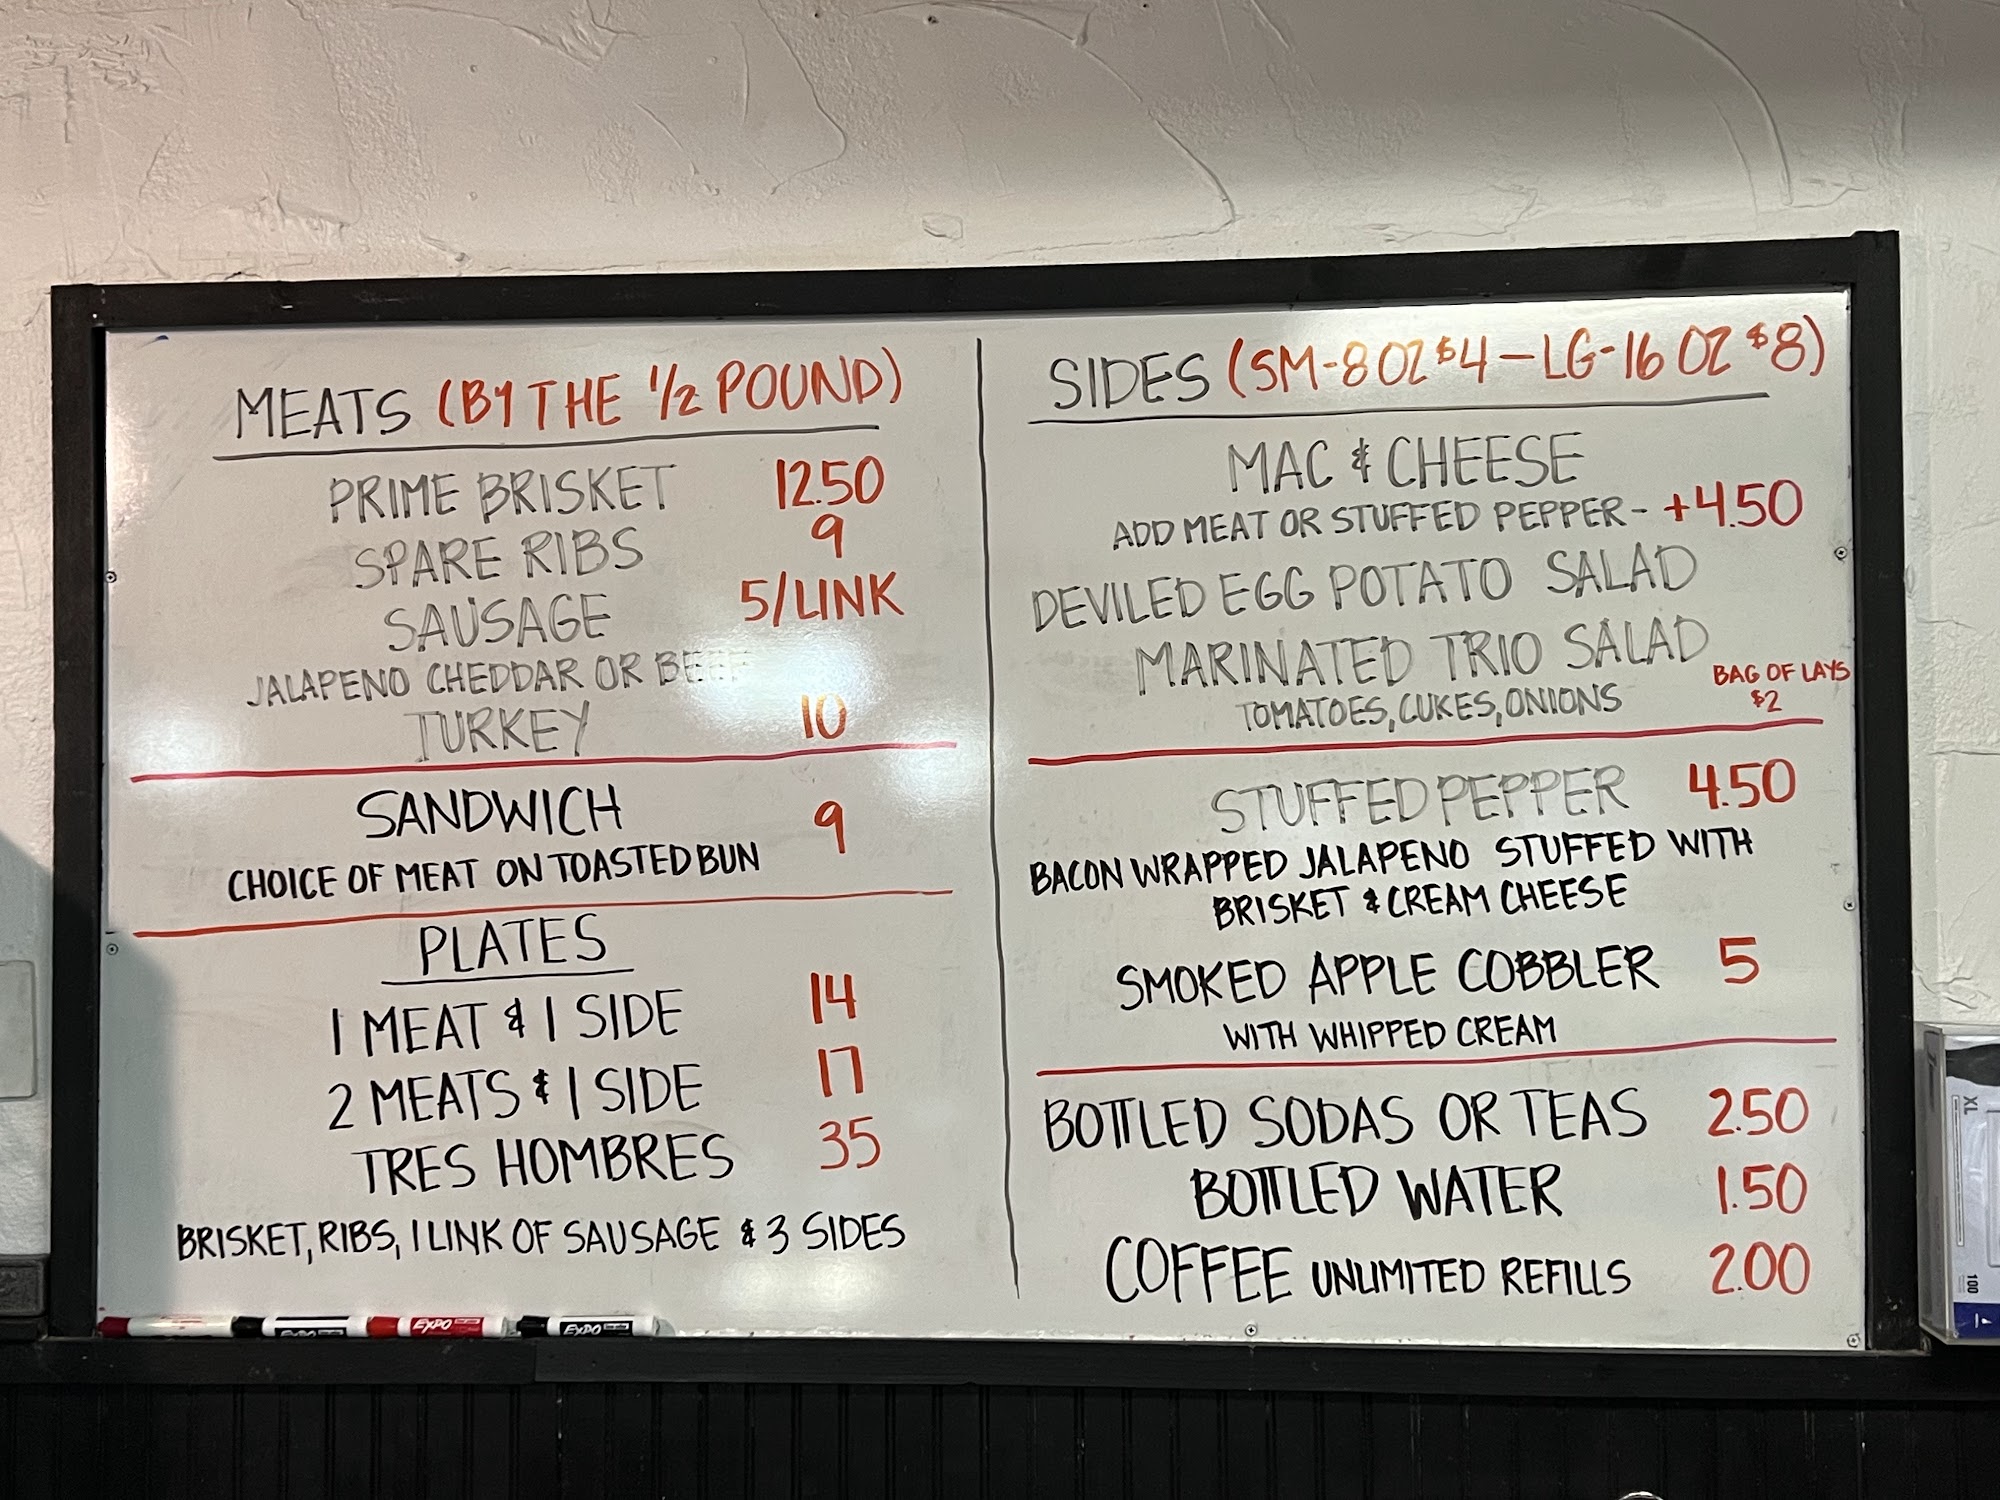 MEATS (BY THE 1/2 POUND)
PRIME BRISKET 12.50
SPARE RIBS 9
SAUSAGE 5/LINK
JALAPENO CHEDDAR OR BEEF
TURKEY 10
SANDWICH 9
CHOICE OF MEAT ON TOASTED BUN
PLATES
1 MEAT & 1 SIDE 14
2 MEATS & 1 SIDE 17
TRES HOMBRES 35
BRISKET, RIBS, 1 LINK OF SAUSAGE & 3 SIDES
SIDES (SM-8 OZ $4 - LG-16 OZ $8)
MAC & CHEESE
ADD MEAT OR STUFFED PEPPER - +4.50
DEVILED EGG POTATO SALAD
MARINATED TRIO SALAD
TOMATOES, CUKES, ONIONS
BAG OF LAYS
$2
STUFFED PEPPER 4.50
BACON WRAPPED JALAPENO STUFFED WITH
BRISKET & CREAM CHEESE
SMOKED APPLE COBBLER 5
WITH WHIPPED CREAM
BOTTLED SODAS OR TEAS 2.50
BOTTLED WATER 1.50
COFFEE UNLIMITED REFILLS 2.00
EXPO
EXPO
EXPO
XL
100